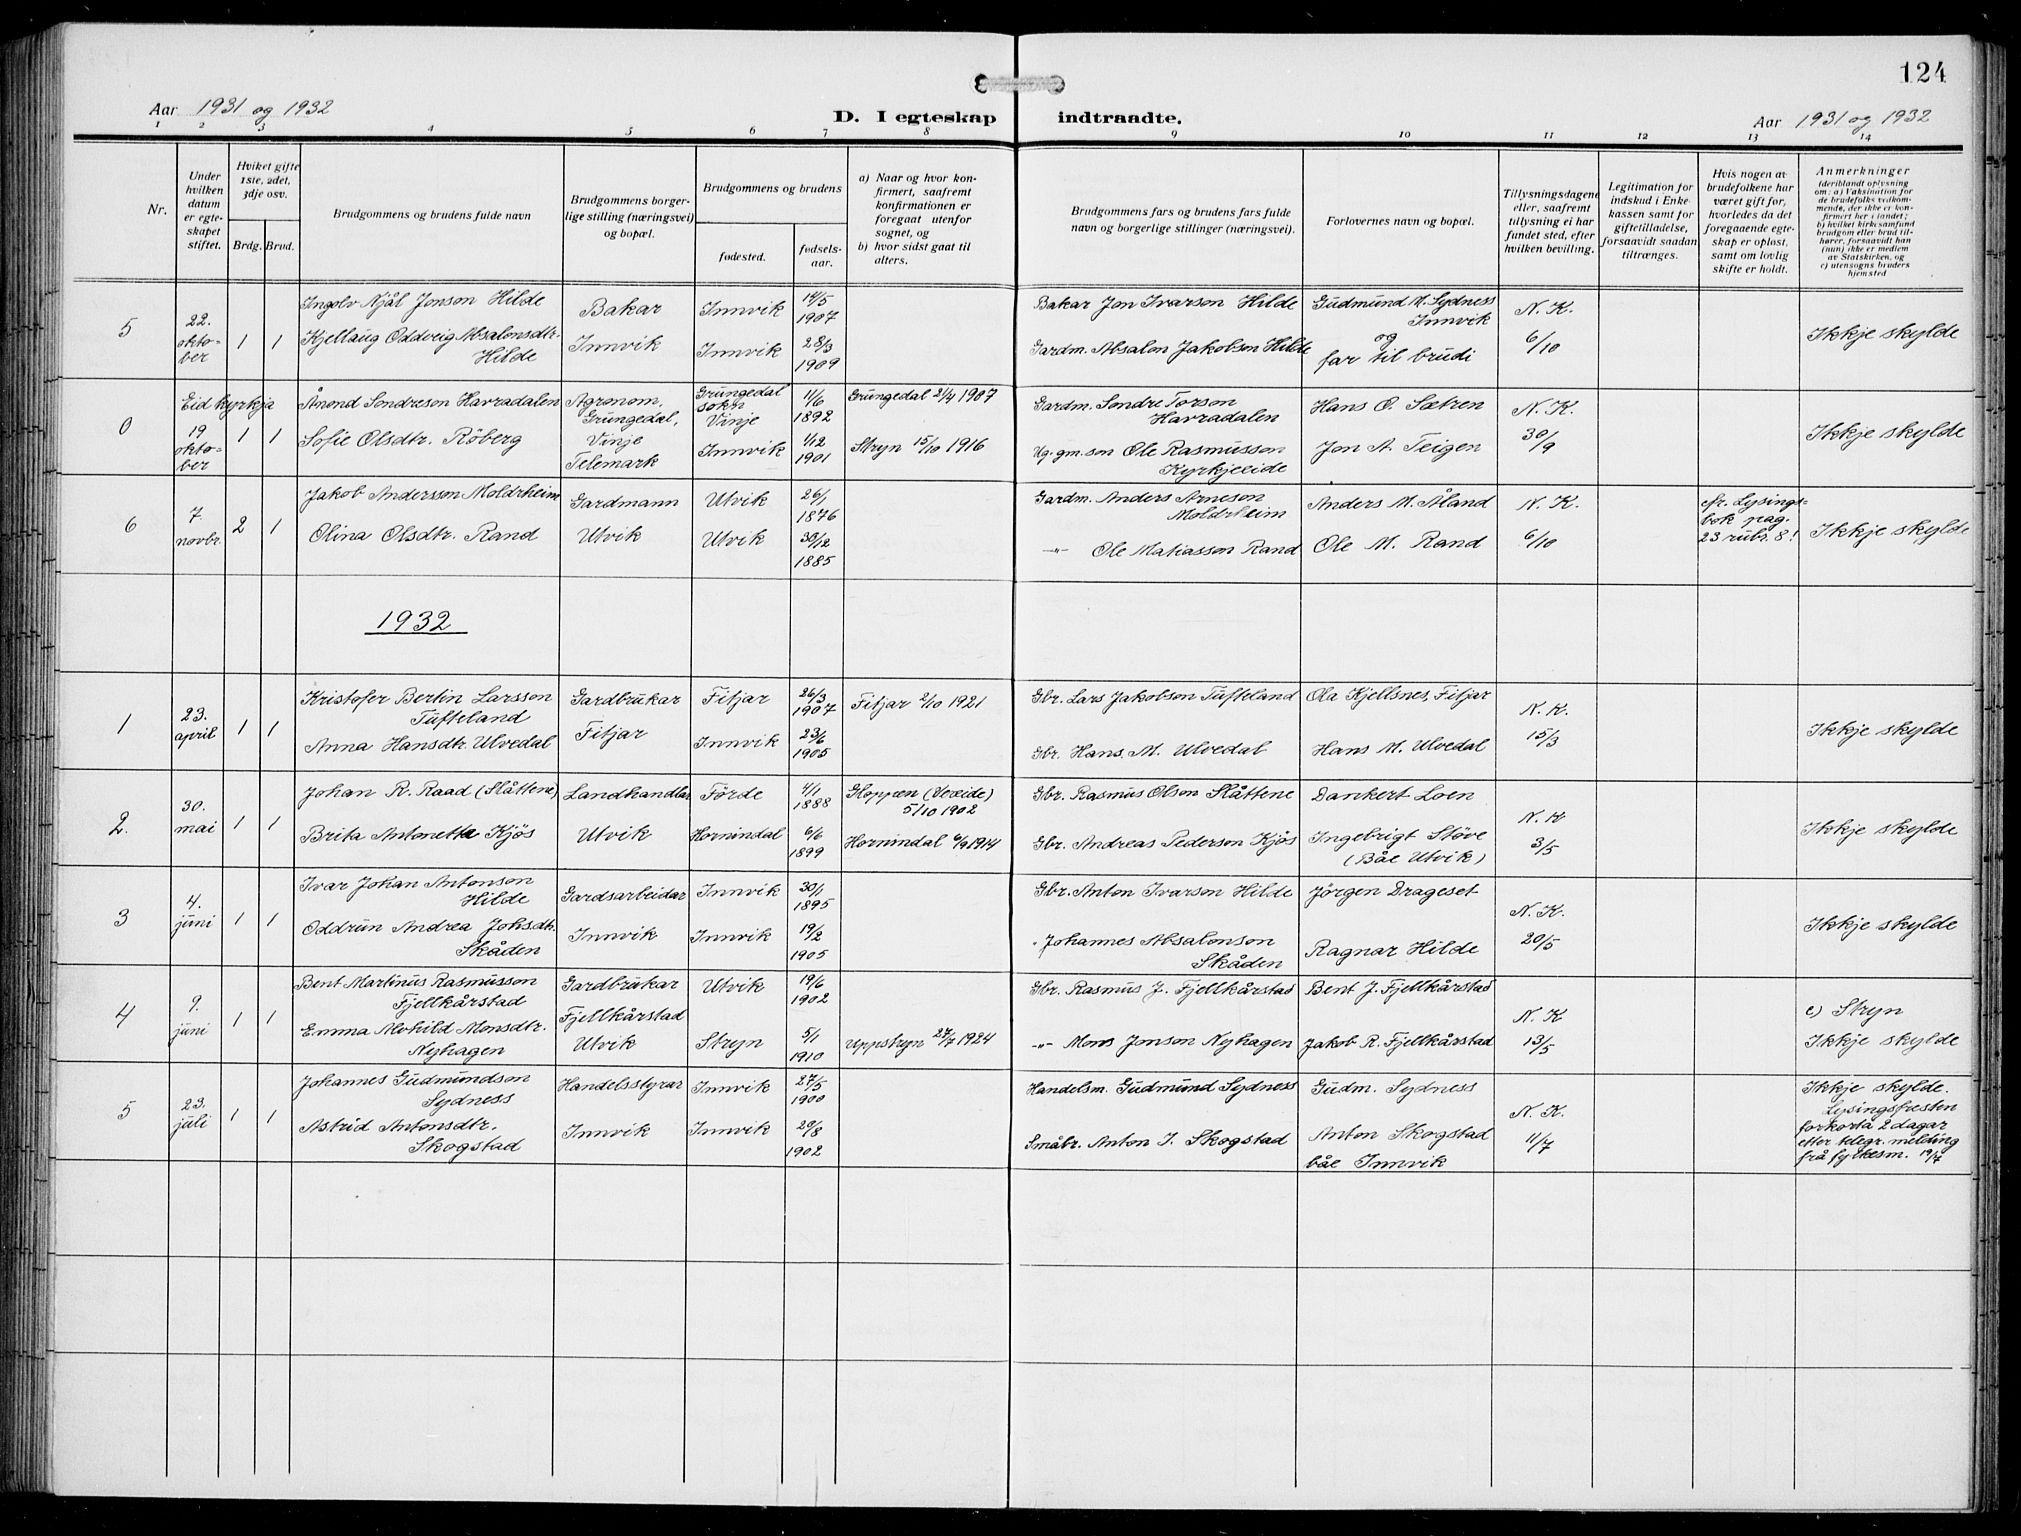 124
Aar 1931 og 1932
D. I egteskap indtraadte.
Aar 1931 og 1932
1 2 3 4 5 6 7 8 9 10 11 12 13 14
Nr.
Under hvilken datum er egteskapet stiftet.
Hvilket gifte 1ste, 2det, 3dje osv.
Brdg. Brud.
Brudgommens og brudens fulde navn
Brudgommens borgerlige stilling (næringsvei) og bopæl.
Brudgommens og brudens
fødested.
fødselsaar.
a) Naar og hvor konfirmert, saafremt konfirmationen er foregaat utenfor sognet, og
b) hvor sidst gaat til alters.
Brudgommens fars og brudens fars fulde navn og borgerlige stillinger (næringsvei).
Forlovernes navn og bopæl.
Tillysningsdagene eller, saafremt tillysning ei har fundet sted, efter hvilken bevilling.
Legitimation for indskud i Enkekassen samt for giftetilladelse, forsaavidt saadan tiltrænges.
Hvis nogen av brudefolkene har været gift før, hvorledes da det foregaaende egteskap er opløst, samt om lovlig skifte er holdt.
Anmerkninger (deriblandt oplysning om: a) Vaksination for de brudefolks vedkommende, der ikke er konfirmert her i landet; b) hvilket kirkesamfund brudgom eller brud tilhører, forsaavidt han (hun) ikke er medlem av Statskirken, og c) utensogns bruders hjemsted
5 22. oktober 1 1 Ingolv Njål Jonson Hilde Bakar Innvik 14/5 1907 Bakar Jon Ivarson Hilde Gudmund M. Sydness Innvik N. K.
Kjellaug Oddveig Absalonsdtr. Hilde Innvik Innvik 28/3 1909 Gardm. Absalon Jakobson Hilde og far til brudi 6/10 Ikkje skylde
0 Eid kyrkja 19 oktober 1 1 Ånond Sondreson Havradalen Agronom, Grungedal, Grungedal sokn Vinje 11/6 1892 Grungedal 21/4 1907 Gardm. Sondre Torson Havradalen Hans O. Sætren N. K.
Sofie Olsdtr. Röberg Vinje Telemark Innvik 1/12 1901 Stryn 15/10 1916 Ug. gm.son Ole Rasmusson Kyrkjeeide Jon A. Teigen 30/9 Ikkje skylde
6 7. novbr. 2 1 Jakob Andersson Moldrheim Gardmann Utvik 26/1 1876 Gardm. Anders Arneson Moldrheim Anders M. Åland N. K. cfr. Lysingsbok pag. 23 rubr. 8!
Olina Olsdtr. Rand Utvik Utvik 30/12 1885 -"- Ole Matiasson Rand Ole M. Rand 6/10 Ikkje skylde
1932
1 23. april 1 1 Kristofer Bertin Larsson Tufteland Gardbrukar Fitjar 26/3 1907 Fitjar 2/10 1921 Gbr. Lars Jakobson Tufteland Ola Kjellsnes, Fitjar N. K.
Anna Hansdtr. Ulvedal Fitjar Innvik 23/6 1905 Gbr. Hans. M. Ulvedal Hans M. Ulvedal 15/3 Ikkje skylde
2. 30. mai 1 1 Johan R. Raad (Slåttene) Landhandlar Förde 4/1 1888 Gloppen (Vereide) 5/10 1902 Gbr. Rasmus Olson Slåttene Dankert Loen N. K
Brita Antonetta Kjös Utvik Hornindal 6/6 1899 Hornindal 6/9 1914 Gbr. Andreas Pederson Kjös Ingebrigt Stöve (Båe Utvik) 3/5 Ikkje skylde
3 4. juni 1 1 Ivar Johan Antonson Hilde Gardsarbeidar Innvik 30/1 1895 Gbr. Anton Ivarson Hilde Jörgen Drageset N. K.
Oddrun Andrea Johsdtr. Skåden Innvik Innvik 19/2 1905 Johannes Absalonson Skåden Ragnar Hilde 20/5 Ikkje skylde
4 9. juni 1 1 Bent Martinus Rasmusson Fjellkårstad Gardbrukar Utvik 19/6 1902 Gbr. Rasmus J. Fjellkårstad Bent J. Fjellkårstad N. K c) Stryn
Emma Mohild Monsdtr. Nyhagen Fjellkårstad Utvik Stryn 5/1 1910 Uppstryn 27/7 1924 -"- Mons Jonson Nyhagen Jakob R. Fjellkårstad 13/5 Ikkje skylde
5 23. juli 1 1 Johannes Gudmundson Sydness Handelsstyrar Innvik 27/5 1900 Handelsm. Gudmund Sydness Gudm. Sydness N. K. Ikkje skylde.
Astrid Antonsdtr. Skogstad Innvik Innvik 20/8 1902 Småbr. Anton I. Skogstad Anton Skogstad båe Innvik 11/7 Lysingsfresten forkorta 2 dagar etter telegr. melding frå fylkesm. 19/7